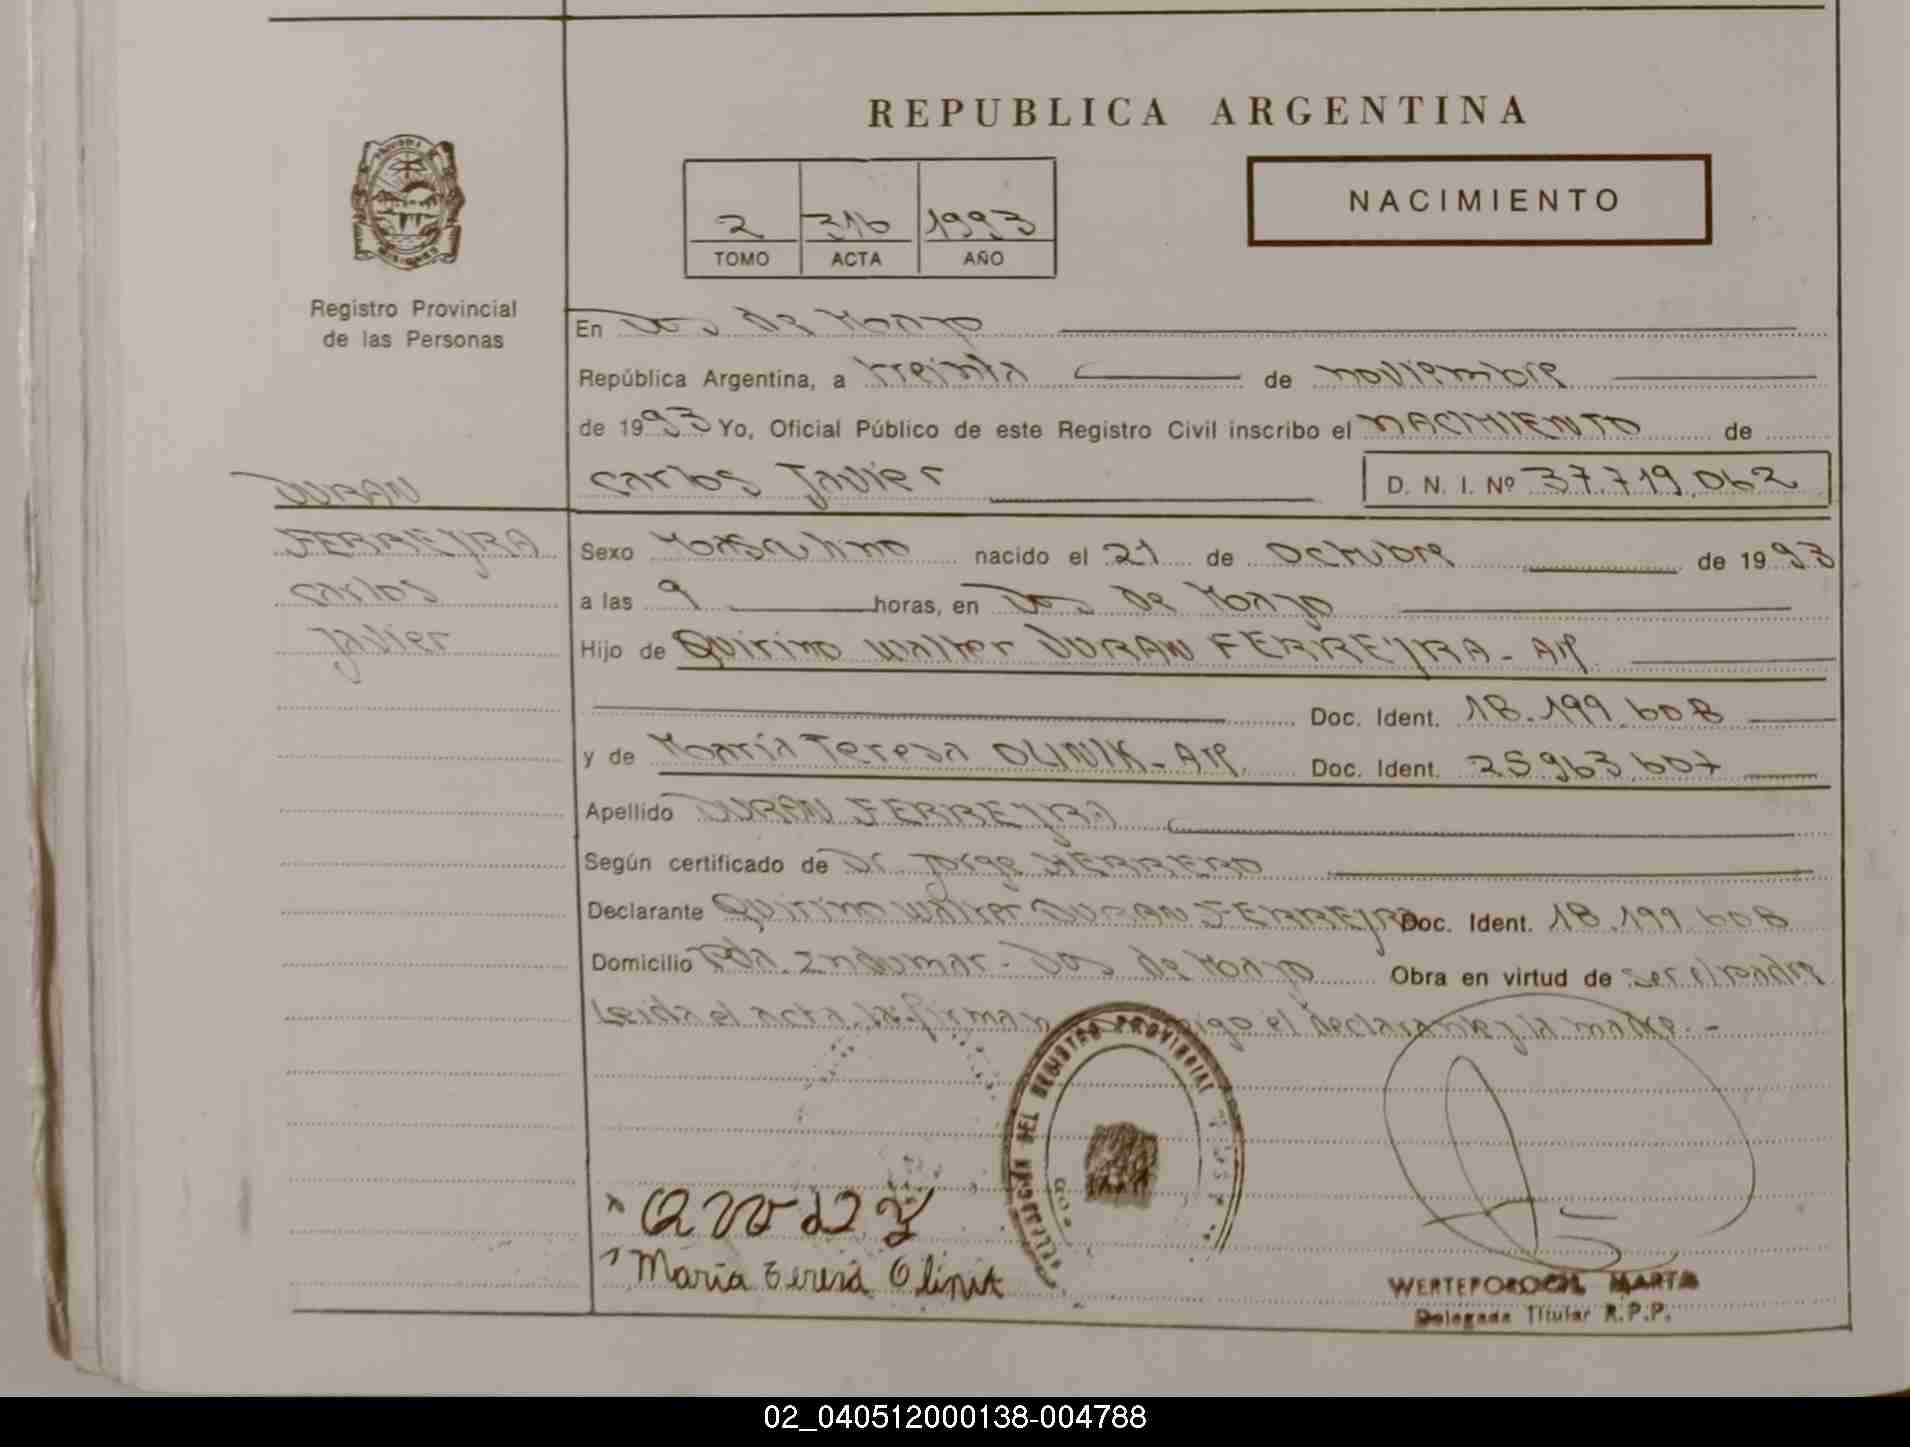 REPUBLICA ARGENTINA
NACIMIENTO
2 316 1993
TOMO ACTA AÑO
Registro Provincial
de las Personas
En Dos de Mayo
República Argentina, a treinta de noviembre
de 1993 Yo, Oficial Público de este Registro Civil inscribo el NACIMIENTO de
Carlos Javier D. N. I. Nº 37.719.062
DURAN
FERREYRA
Carlos
Javier
Sexo Masculino nacido el 21 de Octubre de 1993
a las 9 horas, en Dos de Mayo
Hijo de Quirino Walter DURAN FERREYRA - Arg.
Doc. Ident. 18.199.608
y de María Teresa OLINIK - Arg. Doc. Ident. 25.963.607
Apellido DURAN FERREYRA
Según certificado de Dr. Jorge HERRERO
Declarante Quirino Walter DURAN FERREYRA Doc. Ident. 18.199.608
Domicilio Dos de Mayo Obra en virtud de ser el padre
Leida el acta, la firman conmigo el declarante y la madre.-
DELEGACION DEL REGISTRO PROVINCIAL
Maria Teresa Olinik
WERTEPOROCH MARTA
Delegada Titular R.P.P.
02_040512000138-004788